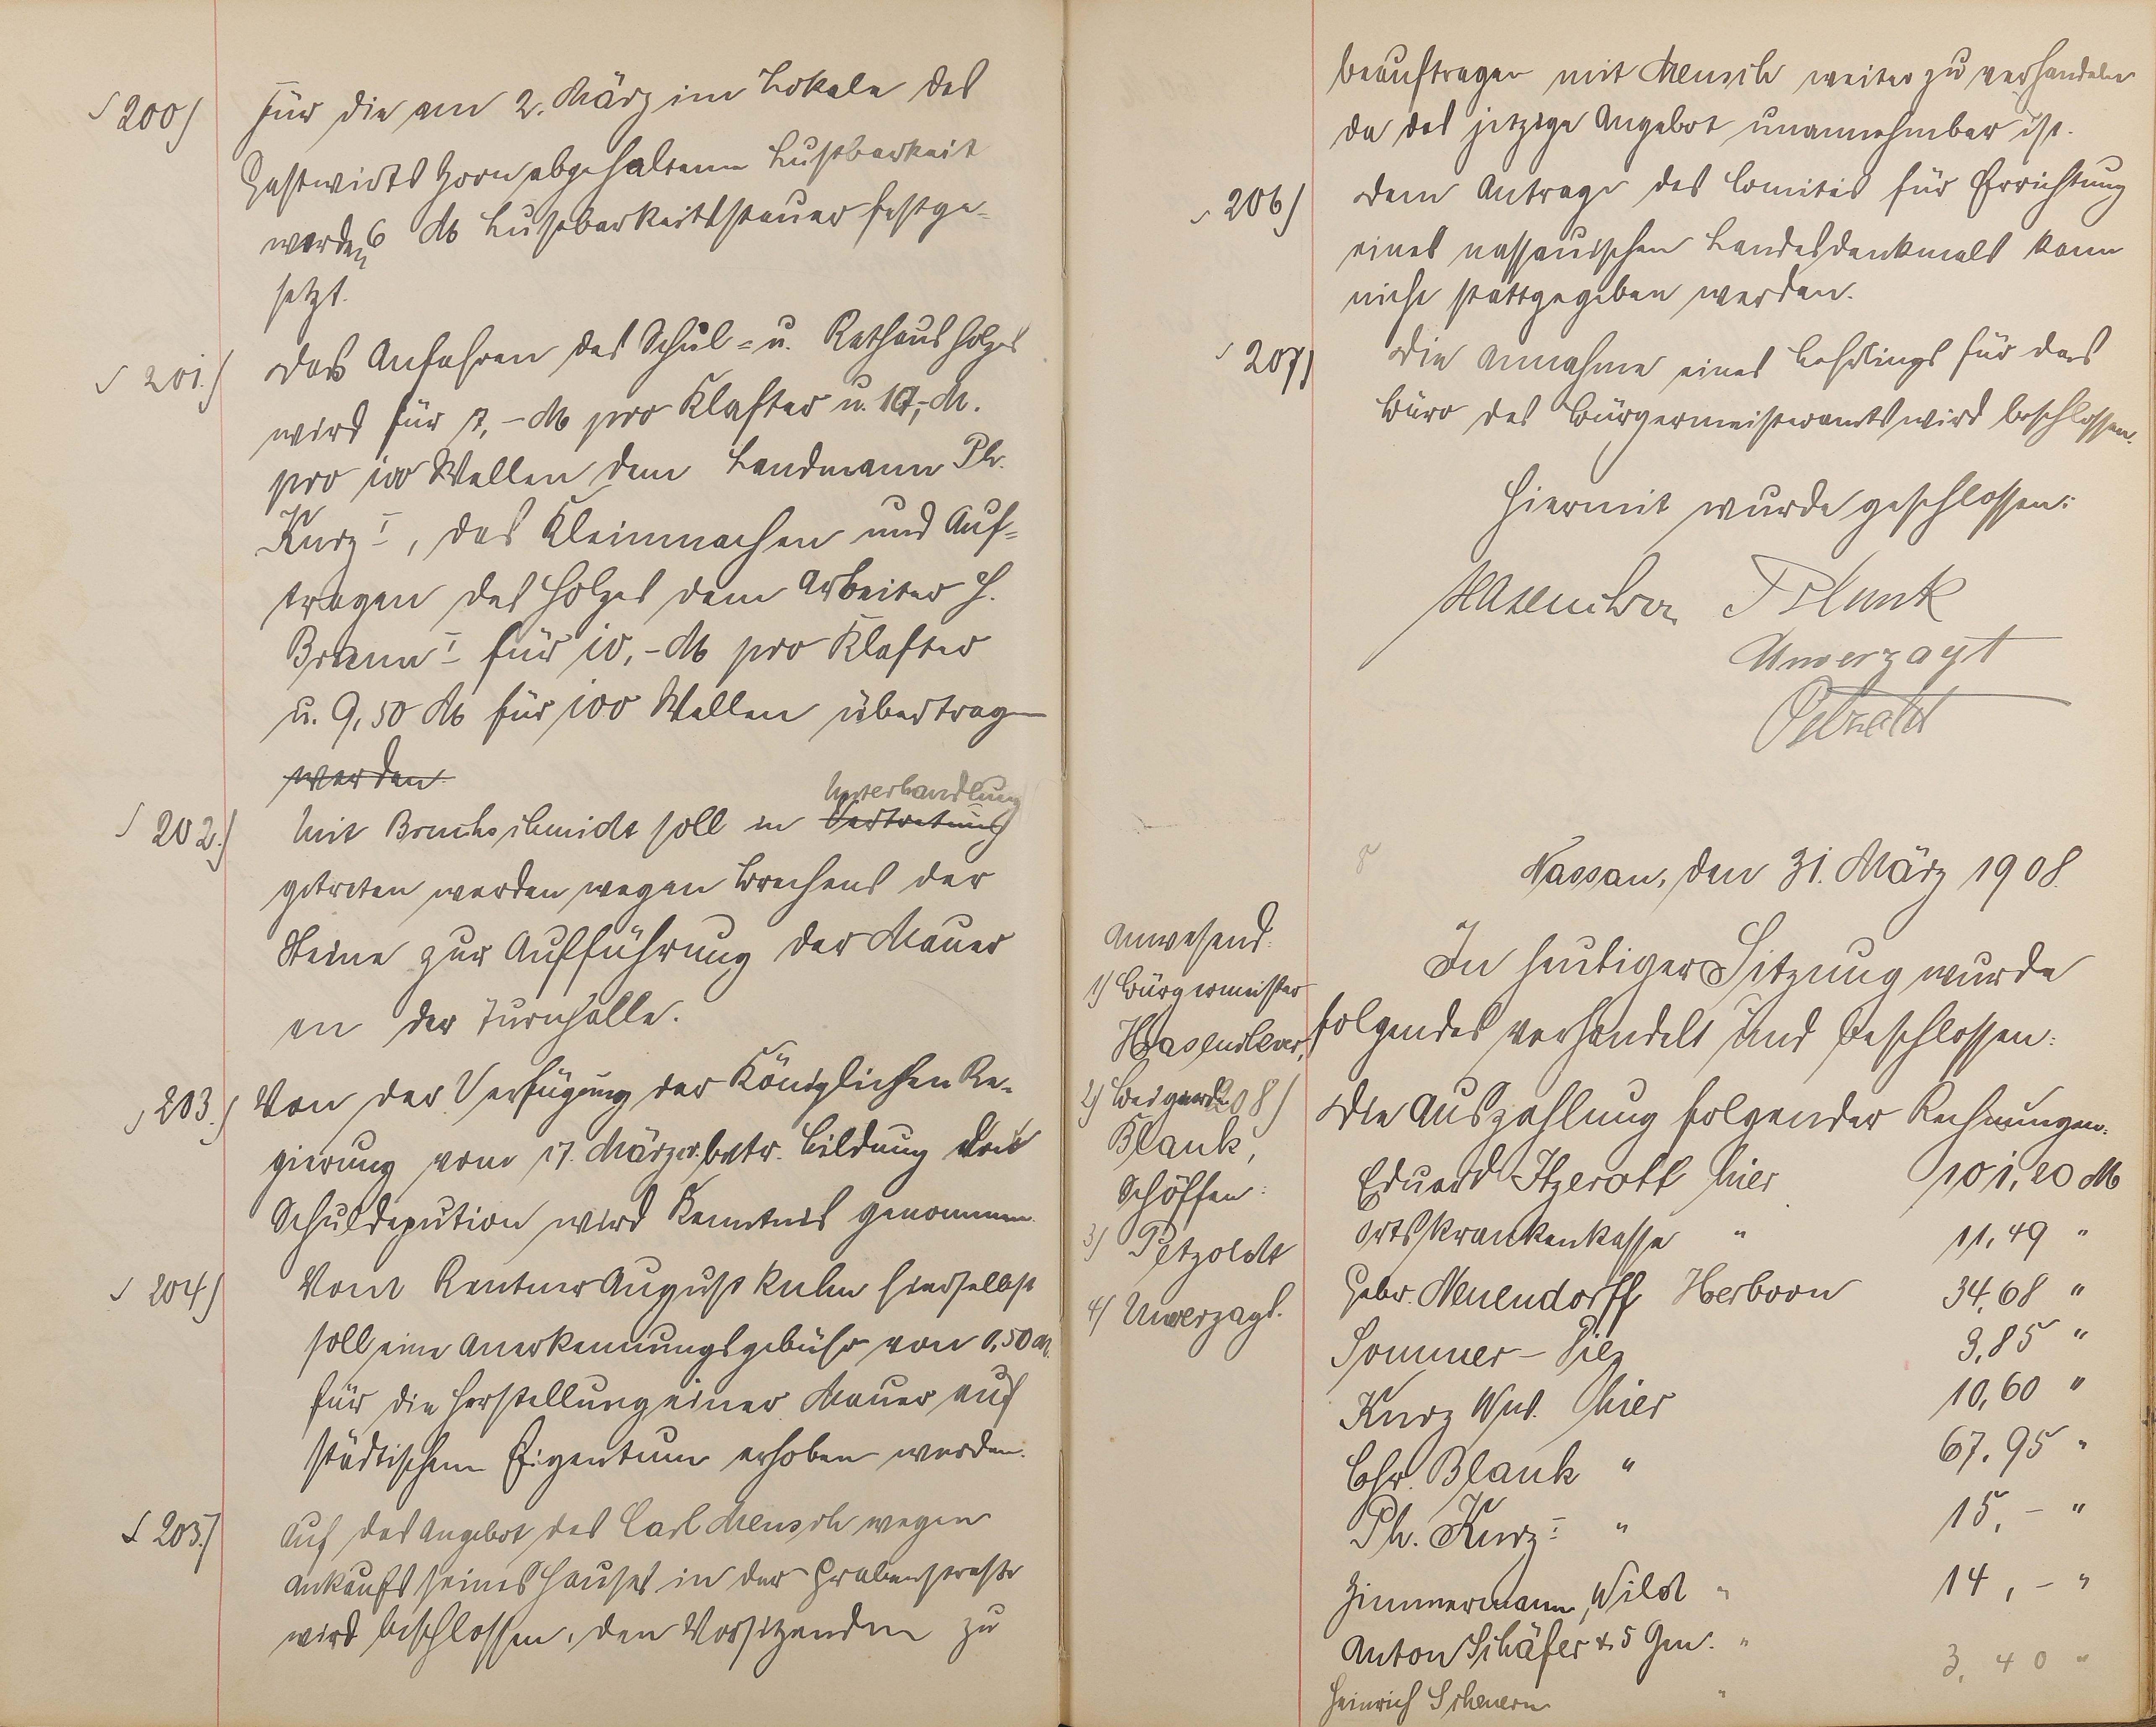 § 200) Für die am 2. März im Lokale des
Gastwirts Horn abgehaltenen Lustbarkeit
werden 6 M Lustbarkeitssteuer festge-
setzt.
§ 201.) Das Anfahren des Schul- u. Rathausholzes
wird für 7,- M pro Klafter u. 10,- M.
pro 100 Wellen dem Landmann Ph.
Kurz I, das Kleinmachen und Auf-
tragen des Holzes dem Arbeiter H.
Braun I für 10,- M pro Klafter
u. 9,50 M für 100 Wellen übertragen
werden
Unterhandlung
§ 202.) Mit Bruchschmidt soll in Vertretung
getreten werden wegen Brechens der
Steine zur Aufführung der Mauer
an der Turnhalle.
§ 203.) Von der Verfügung der Königlichen Re-
gierung vom 17. März cr. betr. Bildung der
Schuldepution wird Kenntnis genommen.
§ 204) Vom Rentner August Kuhn hierselbst
soll eine Anerkennungsgebühr von 0,50 M.
für die Herstellung einer Mauer auf
städtischem Eigentum erhoben werden.
§ 205.) Auf das Angebot des Carl Mensch wegen
Ankaufs seines Hauses in der Grabenstraße
wird beschlossen, den Vorsitzenden zu
beauftragen mit Mensch weiter zu verhandeln
da das jetzige Angebot unannehmbar ist.
§ 206) Dem Antrage des Comités für Errichtung
eines nassauischen Landesdenkmals kann
nicht stattgegeben werden.
§ 207) Die Annahme eines Lehrlings für das
Büro des Bürgermeisteramts wird beschlossen.
Hiermit wurde geschlossen:
Hasenclever Blank
Unverzagt
Petzoldt
Nassau, den 31. März 1908.
Anwesend:
1) Bürgermeister
Hasenclever,
2) Beigeord.
Blank,
Schöffen:
3) Petzoldt
4) Unverzagt.
In heutiger Sitzung wurde
folgendes verhandelt und beschlossen:
208) Die Auszahlung folgender Rechnungen:
Eduard Itzerott hier 101,20 M
Ortskrankenkasse " 11,49 "
Gebr. Neuendorff Herborn 34,68 "
Sommer - Diez 3,85 "
Kurz Ww. hier 10,60 "
Chr. Blank " 67,95 "
Ph. Kurz I " 15,- "
Zimmermann, Wild " 14,- "
Anton Schäfer & 5 Gen. " 3,40 "
Heinrich Scheuern "